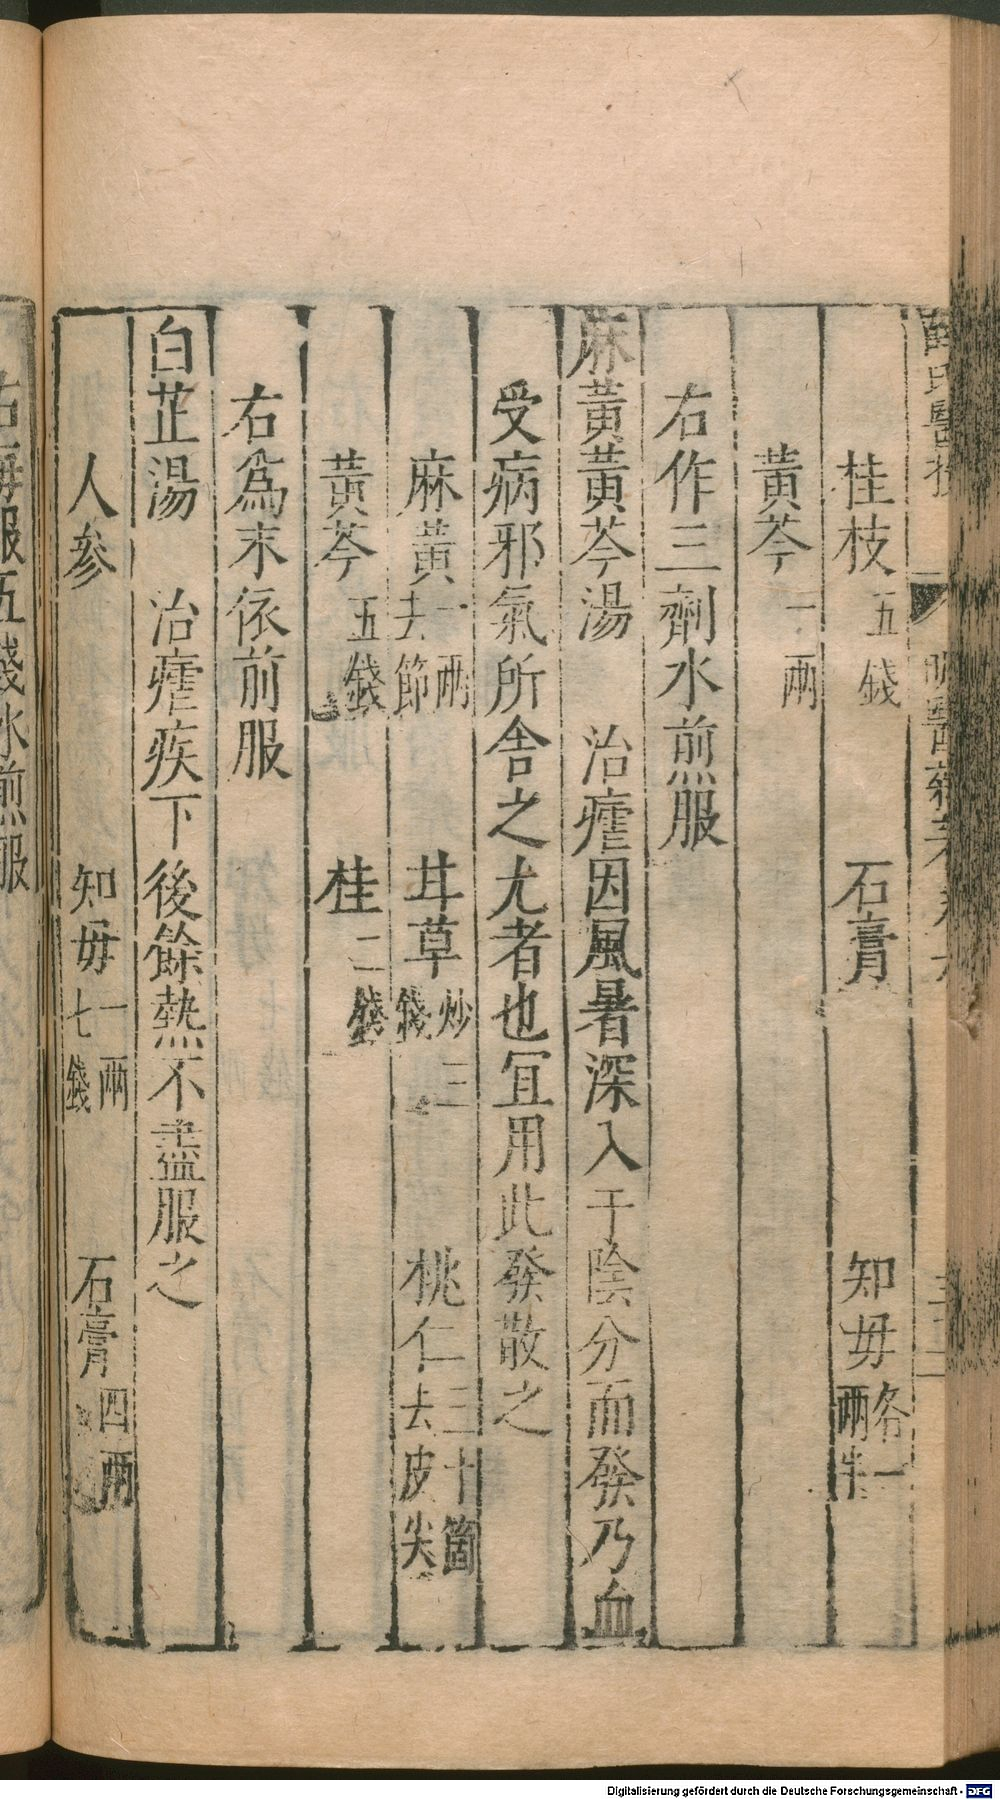 桂枝五錢　石膏　知毋各一兩半
黃芩一兩
右作三劑水煎服
麻黃黃芩湯　治瘧因風暑深入于陰分而發乃血
受病邪氣所舍之尤者也冝用此發散之
麻黃一兩去節　甘草炒三錢　桃仁三十箇去皮尖
黃芩五錢　桂二錢
右為末依前服
白芷湯　治瘧疾下後餘熱不盡服之
人參　知毋一兩七錢　石膏四兩
右每服五錢水煎服
Digitalisierung gefördert durch die Deutsche Forschungsgemeinschaft - DFG